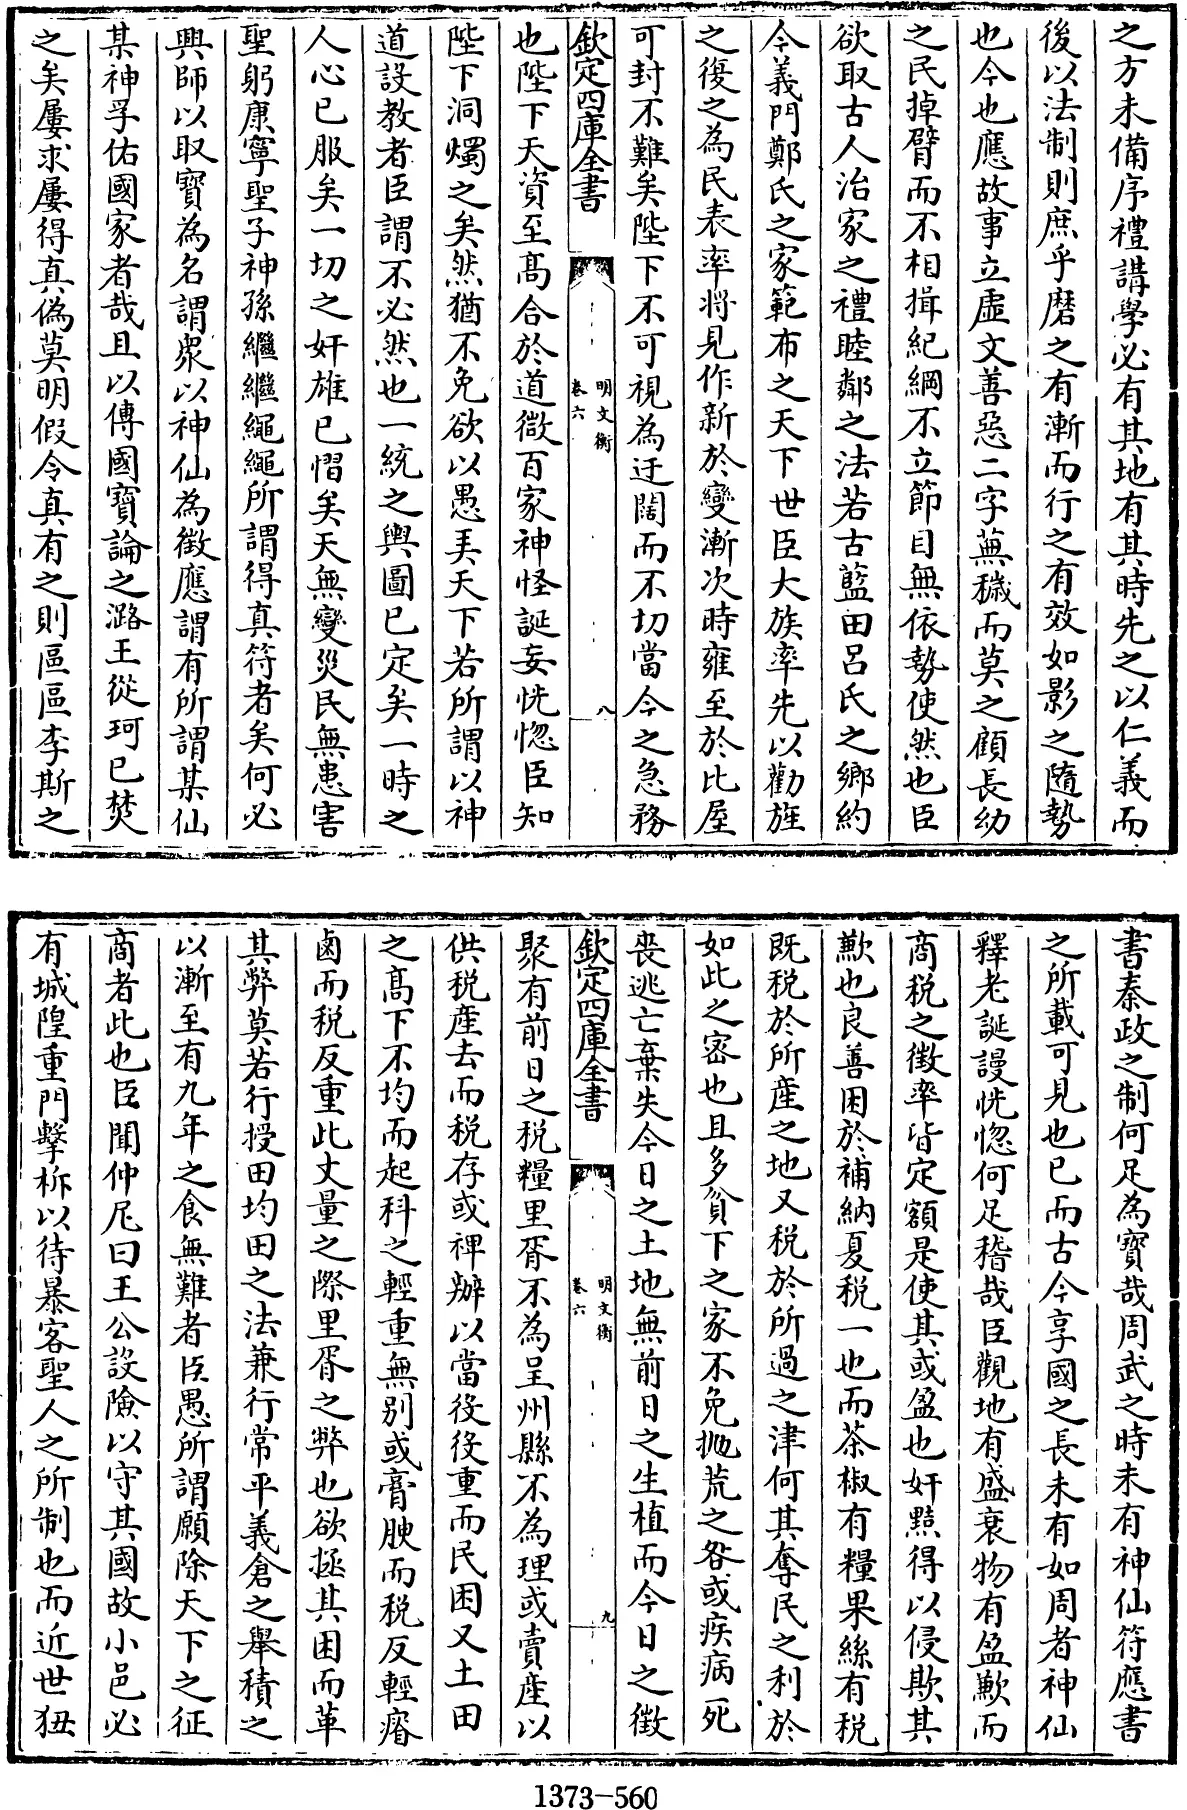 之方未備序禮講學必有其地有其時先之以仁義而
後以法制則庶乎磨之有漸而行之有效如影之隨勢
也今也應故事立虛文善惡二字蕪穢而莫之顧長幼
之民掉臂而不相揖紀綱不立節目無依勢使然也臣
欲取古人治家之禮睦鄰之法若古藍田呂氏之鄉約
今義門鄭氏之家範布之天下世臣大族率先以勸旌
之復之為民表率將見作新於變漸次時雍至於比屋
可封不難矣陛下不可視為迂闊而不切當今之急務
欽定四庫全書
明文衡
卷六
八
也陛下天資至高合於道微百家神怪誕妄恍惚臣知
陛下洞燭之矣然猶不免欲以愚美天下若所謂以神
道設教者臣謂不必然也一統之輿圖已定矣一時之
人心已服矣一切之奸雄已慴矣天無變災民無患害
聖躬康寧聖子神孫繼繼繩繩所謂得真符者矣何必
興師以取寶為名謂衆以神仙為徵應謂有所謂某仙
某神孚佑國家者哉且以傳國寶論之潞王從珂已焚
之矣屢求屢得真偽莫明假令真有之則區區李斯之
書秦政之制何足為寶哉周武之時未有神仙符應書
之所載可見也已而古今享國之長未有如周者神仙
釋老誕謾恍惚何足稽哉臣觀地有盛衰物有盈歉而
商税之徵率皆定額是使其或盈也奸黠得以侵欺其
歉也良善困於補納夏税一也而茶椒有糧果絲有税
既税於所産之地又税於所過之津何其奪民之利於
如此之密也且多貧下之家不免抛荒之咎或疾病死
喪逃亡棄失今日之土地無前日之生植而今日之徵
欽定四庫全書
明文衡
卷六
九
聚有前日之税糧里胥不為呈州縣不為理或賣産以
供税産去而税存或裨辦以當役役重而民困又土田
之高下不均而起科之輕重無别或膏腴而税反輕瘠
鹵而税反重此丈量之際里胥之弊也欲拯其困而革
其弊莫若行授田均田之法兼行常平義倉之舉積之
以漸至有九年之食無難者臣愚所謂願除天下之征
商者此也臣聞仲尼曰王公設險以守其國故小邑必
有城隍重門擊柝以待暴客聖人之所制也而近世狃
1373-560